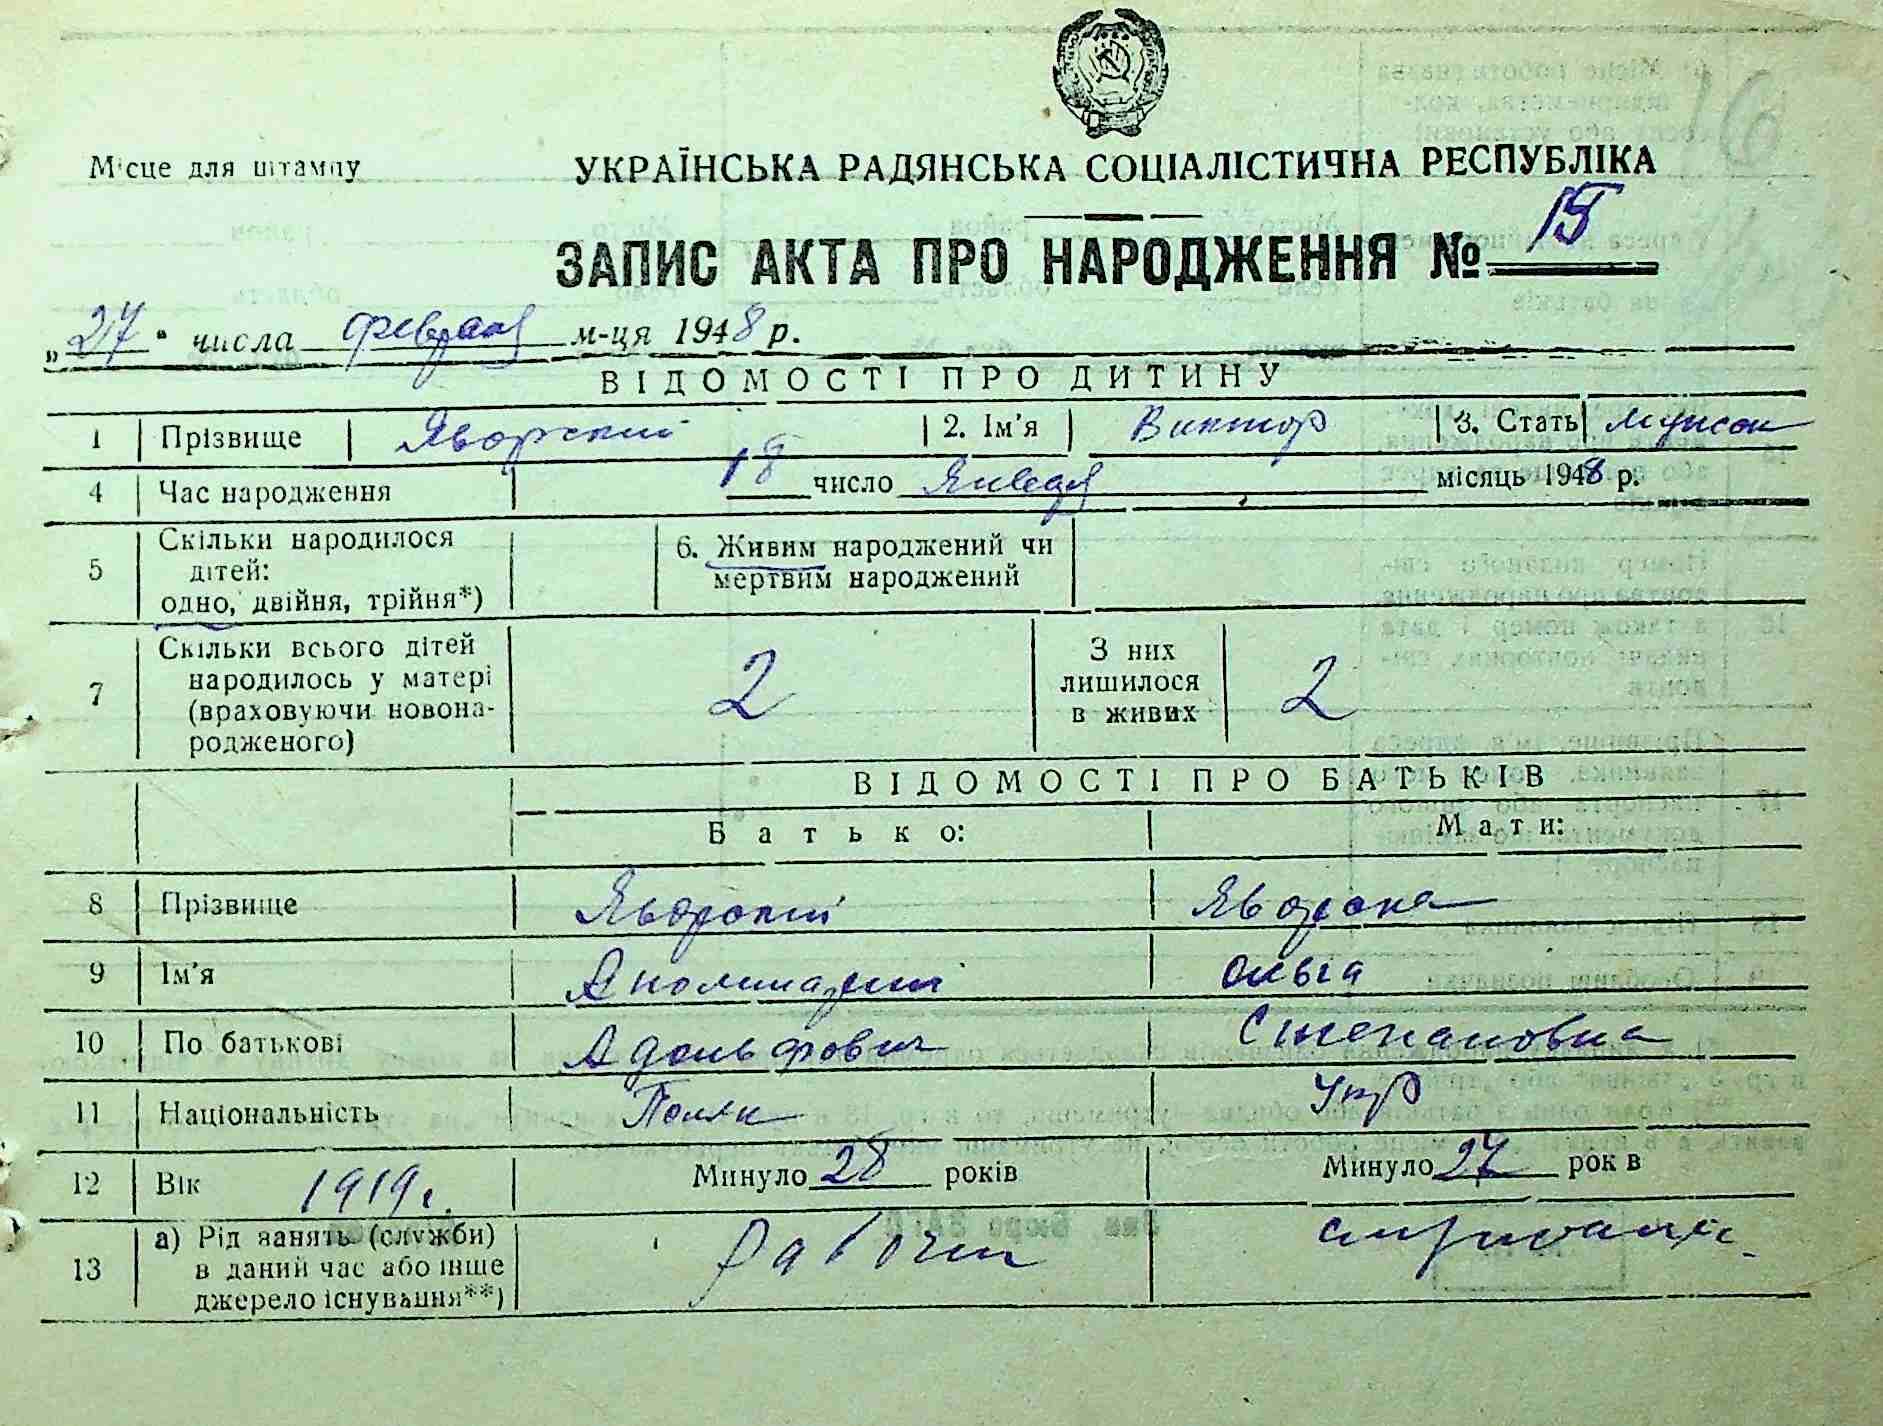 Місце для штампу
УКРАЇНСЬКА РАДЯНСЬКА СОЦІАЛІСТИЧНА РЕСПУБЛІКА
ЗАПИС АКТА ПРО НАРОДЖЕННЯ № 15
„27" числа февраля м-ця 1948 р.
ВІДОМОСТІ ПРО ДИТИНУ
1 Прізвище Яворский 2. Ім'я Виктор 3. Стать мужск
4 Час народження 18 число Января місяць 1948 р.
5 Скільки народилося дітей: одно, двійня, трійня*) 6. Живим народжений чи мертвим народжений
7 Скільки всього дітей народилось у матері (враховуючи новонародженого) 2 З них лишилося в живих 2
ВІДОМОСТІ ПРО БАТЬКІВ
Батько: Мати:
8 Прізвище Яворский Яворска
9 Ім'я Ольга
10 По батькові Адольфович Степановна
11 Національність Поляк Укр
12 Вік 1919 г. Минуло 28 років Минуло 27 рок в
13 а) Рід занять (служби) в даний час або інше джерело існування**) Рабочий